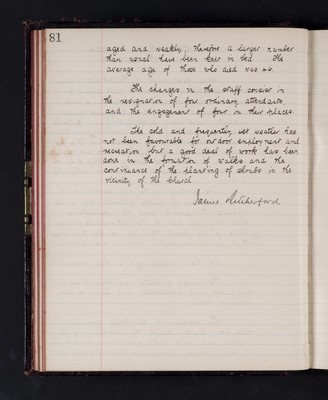 81
aged and weakly, therefore a larger number
than usual have been kept in bed. The
average age of those who died was 60.
The changes in the staff consist in
the resignation of four ordinary attendants,
and the engagement of four in their places.
The cold and frequently wet weather has
not been favourable for outdoor employment and
recreation but a good deal of work has been
done in the formation of walks and the
continuance of the planting of shrubs in the
vicinity of the Church
James Rutherford